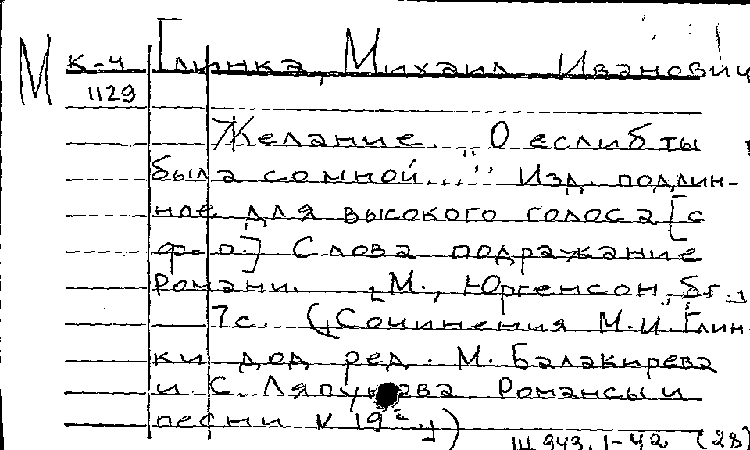 М к-ч Глинка, Михаил Иванович
1129
Желание „О еслиб ты
была со мной..." Изд. подлин-
ное для высокого голоса [с
ф-о.] Слова подражание
Романи. М., Юргенсон, бг.
7с. (Сочинения М.И. Глин-
ки под ред. М. Балакирева
и С. Ляпунова Романсы и
песни № 19
Ш 943.1-42 (28)